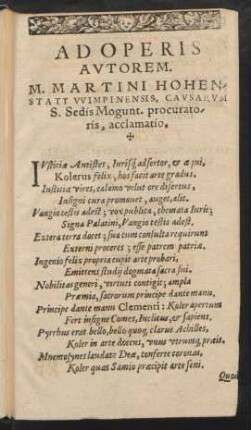 AD OPERIS
AVTOREM.
M. MARTINI HOHEN-
STATT VVIMPINENSIS, CAVSARVM
S. Sedis Mogunt. procurato-
ris, acclamatio.
IVstitiæ Antistes, Iurisq́; adsertor, & æqui,
Kolerus felix, hos facit arte gradus.
Iustitiæ vires, calamo velut ore disertus,
Insigni cura promouet, auget, alit.
Vangio testis adest; vox publica, themata Iuris;
Signa Palatini, Vangio testis adest.
Extera terra docet; sua cum consulta requirunt
Externi proceres; esse patrem patriæ.
Ingenio felix propria cupit arte probari,
Emittens studij dogmata sacra sui.
Nobilitas generi, virtuti contigit; ampla
Præmia, sacrorum principe dante manu,
Principe dante manu Clementi: Koler apertum
Fert insigne Comes, Inclitus, & sapiens.
Pyrrhus erat bello, bello quoq; clarus Achilles,
Koler in arte docens, vnus vtrumq; præit.
Mnemosynes laudate Deæ, conserte coronas,
Koler quas Samio præcipit arte seni.
Quod